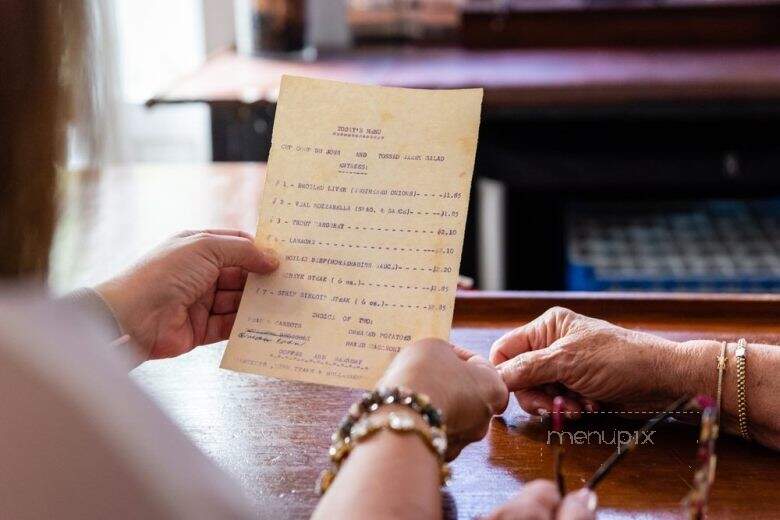 TODAY'S MENU
CUP SOUP DU JOUR AND TOSSED SALAD
ENTREES:
# 1 - BROILED LIVER ( ONIONS)- - - -$1.85
# 2 - VEAL MOZZARELLA (SPAG. & SAUCE)- - - --$1.85
# 3 - TROUT - - - - - - - - - --$2.10
LASAGNA - - - - - - - - - - - - - --$2.10
BOILED BEEF(HORSERADISH SAUCE)- - - - --$2.20
STEAK ( 6 oz.)- - - - - - - - - - -$2.85
# 7 - STRIP SIRLOIN STEAK ( 6 oz.)- - - - - -$2.85
CHOICE OF TWO:
CARROTS CREAMED POTATOES
BAKED MACARONI
COFFEE AND
menupix